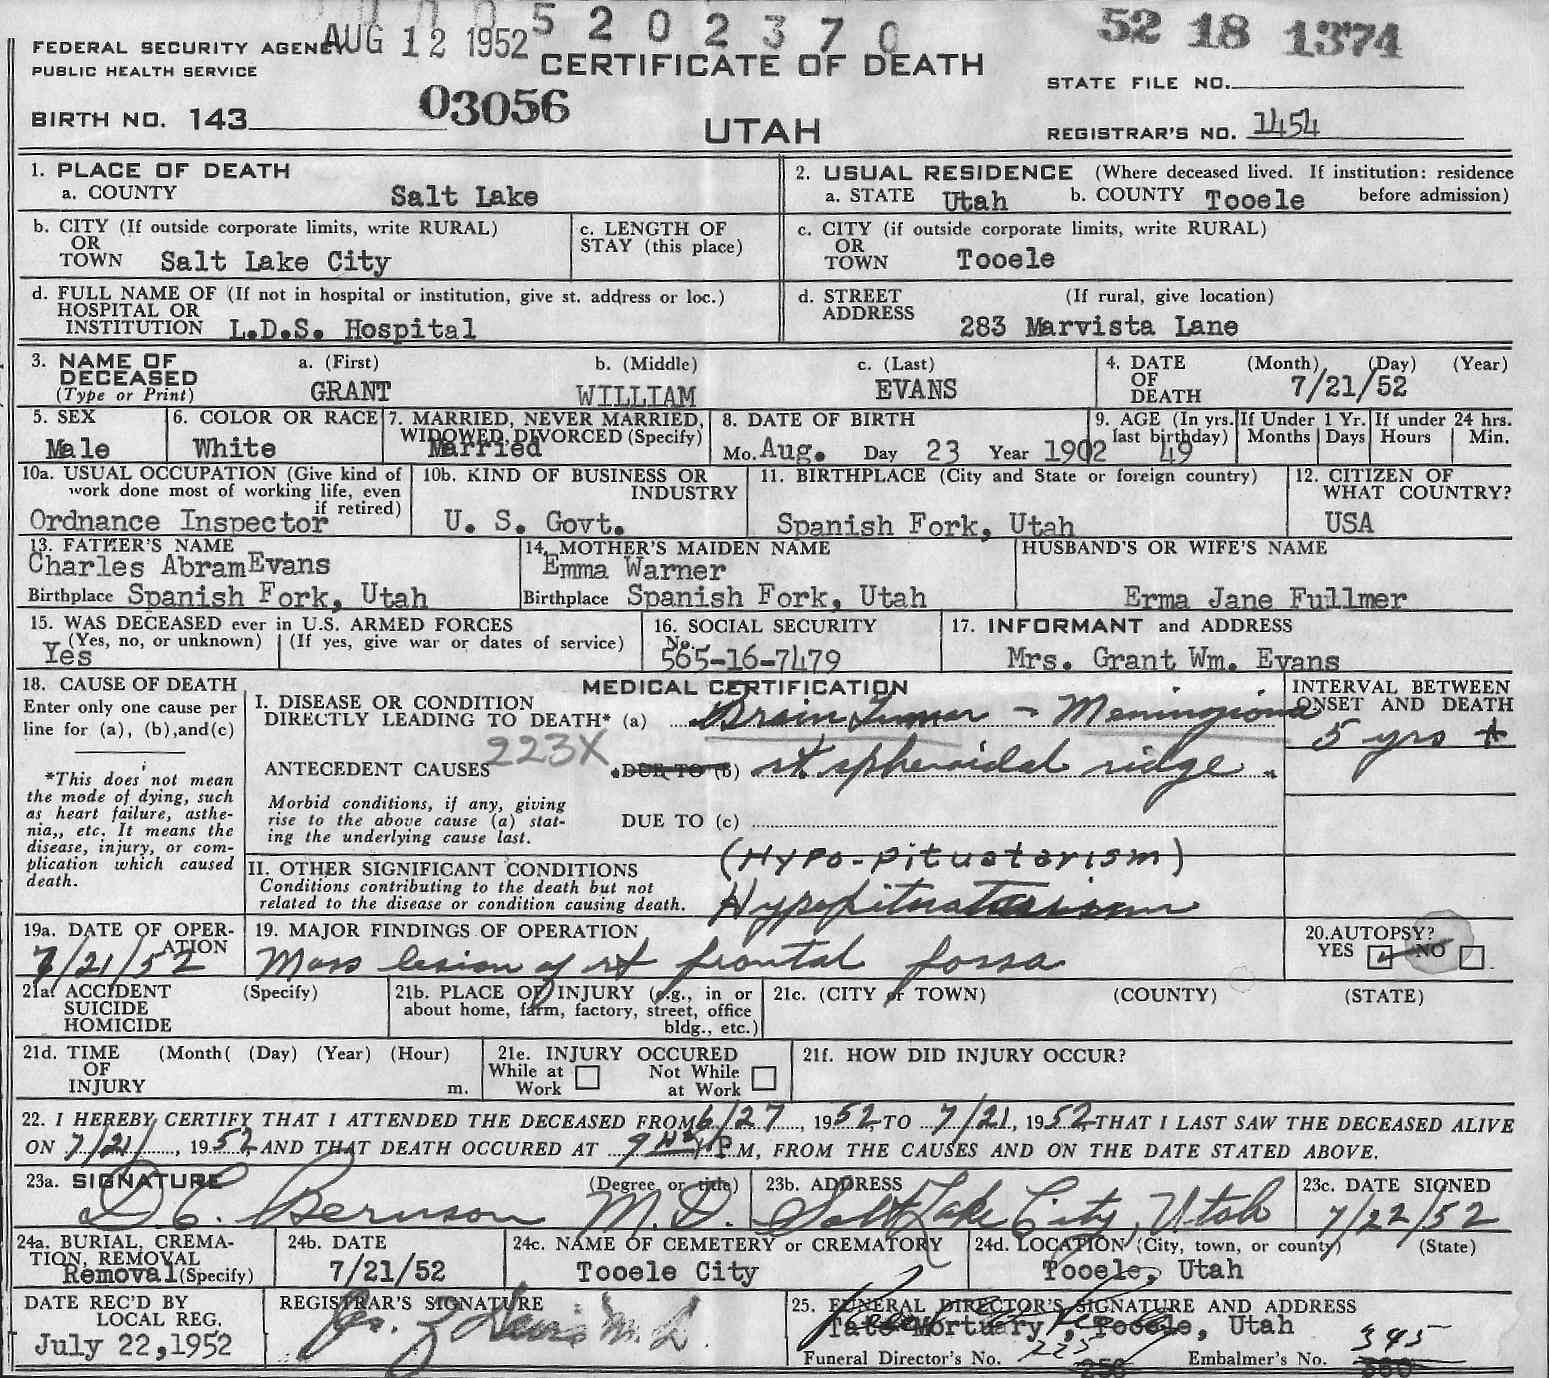 5202370
52 18 1374
FEDERAL SECURITY AGENCY AUG 12 1952
CERTIFICATE OF DEATH
PUBLIC HEALTH SERVICE
STATE FILE NO.
BIRTH NO. 143 03056
UTAH
REGISTRAR'S NO. 1454
1. PLACE OF DEATH
a. COUNTY Salt Lake
2. USUAL RESIDENCE (Where deceased lived. If institution: residence before admission)
a. STATE Utah b. COUNTY Tooele
b. CITY (If outside corporate limits, write RURAL)
OR
TOWN Salt Lake City
c. LENGTH OF
STAY (this place)
c. CITY (if outside corporate limits, write RURAL)
OR
TOWN Tooele
d. FULL NAME OF (If not in hospital or institution, give st. address or loc.)
HOSPITAL OR
INSTITUTION L.D.S. Hospital
d. STREET (If rural, give location)
ADDRESS
283 Marvista Lane
3. NAME OF DECEASED (Type or Print)
a. (First) b. (Middle) c. (Last)
GRANT WILLIAM EVANS
4. DATE OF DEATH (Month) (Day) (Year)
7/21/52
5. SEX
Male
6. COLOR OR RACE
White
7. MARRIED, NEVER MARRIED,
WIDOWED, DIVORCED (Specify)
Married
8. DATE OF BIRTH
Mo. Aug. Day 23 Year 1902
9. AGE (In yrs. last birthday) 49
If Under 1 Yr. Months Days
If under 24 hrs. Hours Min.
10a. USUAL OCCUPATION (Give kind of
work done most of working life, even
if retired)
Ordnance Inspector
10b. KIND OF BUSINESS OR
INDUSTRY
U. S. Govt.
11. BIRTHPLACE (City and State or foreign country)
Spanish Fork, Utah
12. CITIZEN OF
WHAT COUNTRY?
USA
13. FATHER'S NAME
Charles Abram Evans
Birthplace Spanish Fork, Utah
14. MOTHER'S MAIDEN NAME
Emma Warner
Birthplace Spanish Fork, Utah
HUSBAND'S OR WIFE'S NAME
Erma Jane Fullmer
15. WAS DECEASED ever in U.S. ARMED FORCES
(Yes, no, or unknown) (If yes, give war or dates of service)
Yes
16. SOCIAL SECURITY
No.
565-16-7479
17. INFORMANT and ADDRESS
Mrs. Grant Wm. Evans
18. CAUSE OF DEATH
Enter only one cause per
line for (a), (b), and (c)
*This does not mean
the mode of dying, such
as heart failure, asthe-
nia,, etc. It means the
disease, injury, or com-
plication which caused
death.
MEDICAL CERTIFICATION
I. DISEASE OR CONDITION
DIRECTLY LEADING TO DEATH* (a) Brain Tumor - Meningioma
223X
ANTECEDENT CAUSES DUE TO (b) rt spheroidal ridge
Morbid conditions, if any, giving
rise to the above cause (a) stat-
ing the underlying cause last.
DUE TO (c)
INTERVAL BETWEEN
ONSET AND DEATH
5 yrs +
II. OTHER SIGNIFICANT CONDITIONS
Conditions contributing to the death but not
related to the disease or condition causing death.
(Hypo-pituatarism)
Hypopituatarism
19a. DATE OF OPER-
ATION
7/21/52
19. MAJOR FINDINGS OF OPERATION
Mass lesion of rt frontal fossa
20. AUTOPSY?
YES NO
21a. ACCIDENT (Specify)
SUICIDE
HOMICIDE
21b. PLACE OF INJURY (e.g., in or
about home, farm, factory, street, office
bldg., etc.)
21c. (CITY or TOWN) (COUNTY) (STATE)
21d. TIME (Month( (Day) (Year) (Hour)
OF
INJURY m.
21e. INJURY OCCURED
While at Work Not While at Work
21f. HOW DID INJURY OCCUR?
22. I HEREBY CERTIFY THAT I ATTENDED THE DECEASED FROM 6/27, 1952, TO 7/21, 1952 THAT I LAST SAW THE DECEASED ALIVE
ON 7/21, 1952 AND THAT DEATH OCCURED AT P.M, FROM THE CAUSES AND ON THE DATE STATED ABOVE.
23a. SIGNATURE (Degree or title)
D.C. Bernson M.D.
23b. ADDRESS
Salt Lake City, Utah
23c. DATE SIGNED
7/22/52
24a. BURIAL, CREMA-
TION, REMOVAL
Removal (Specify)
24b. DATE
7/21/52
24c. NAME OF CEMETERY or CREMATORY
Tooele City
24d. LOCATION (City, town, or county) (State)
Tooele, Utah
DATE REC'D BY
LOCAL REG.
July 22, 1952
REGISTRAR'S SIGNATURE
M.D.
25. FUNERAL DIRECTOR'S SIGNATURE AND ADDRESS
Tate Mortuary, Tooele, Utah
Funeral Director's No. 225 Embalmer's No. 345